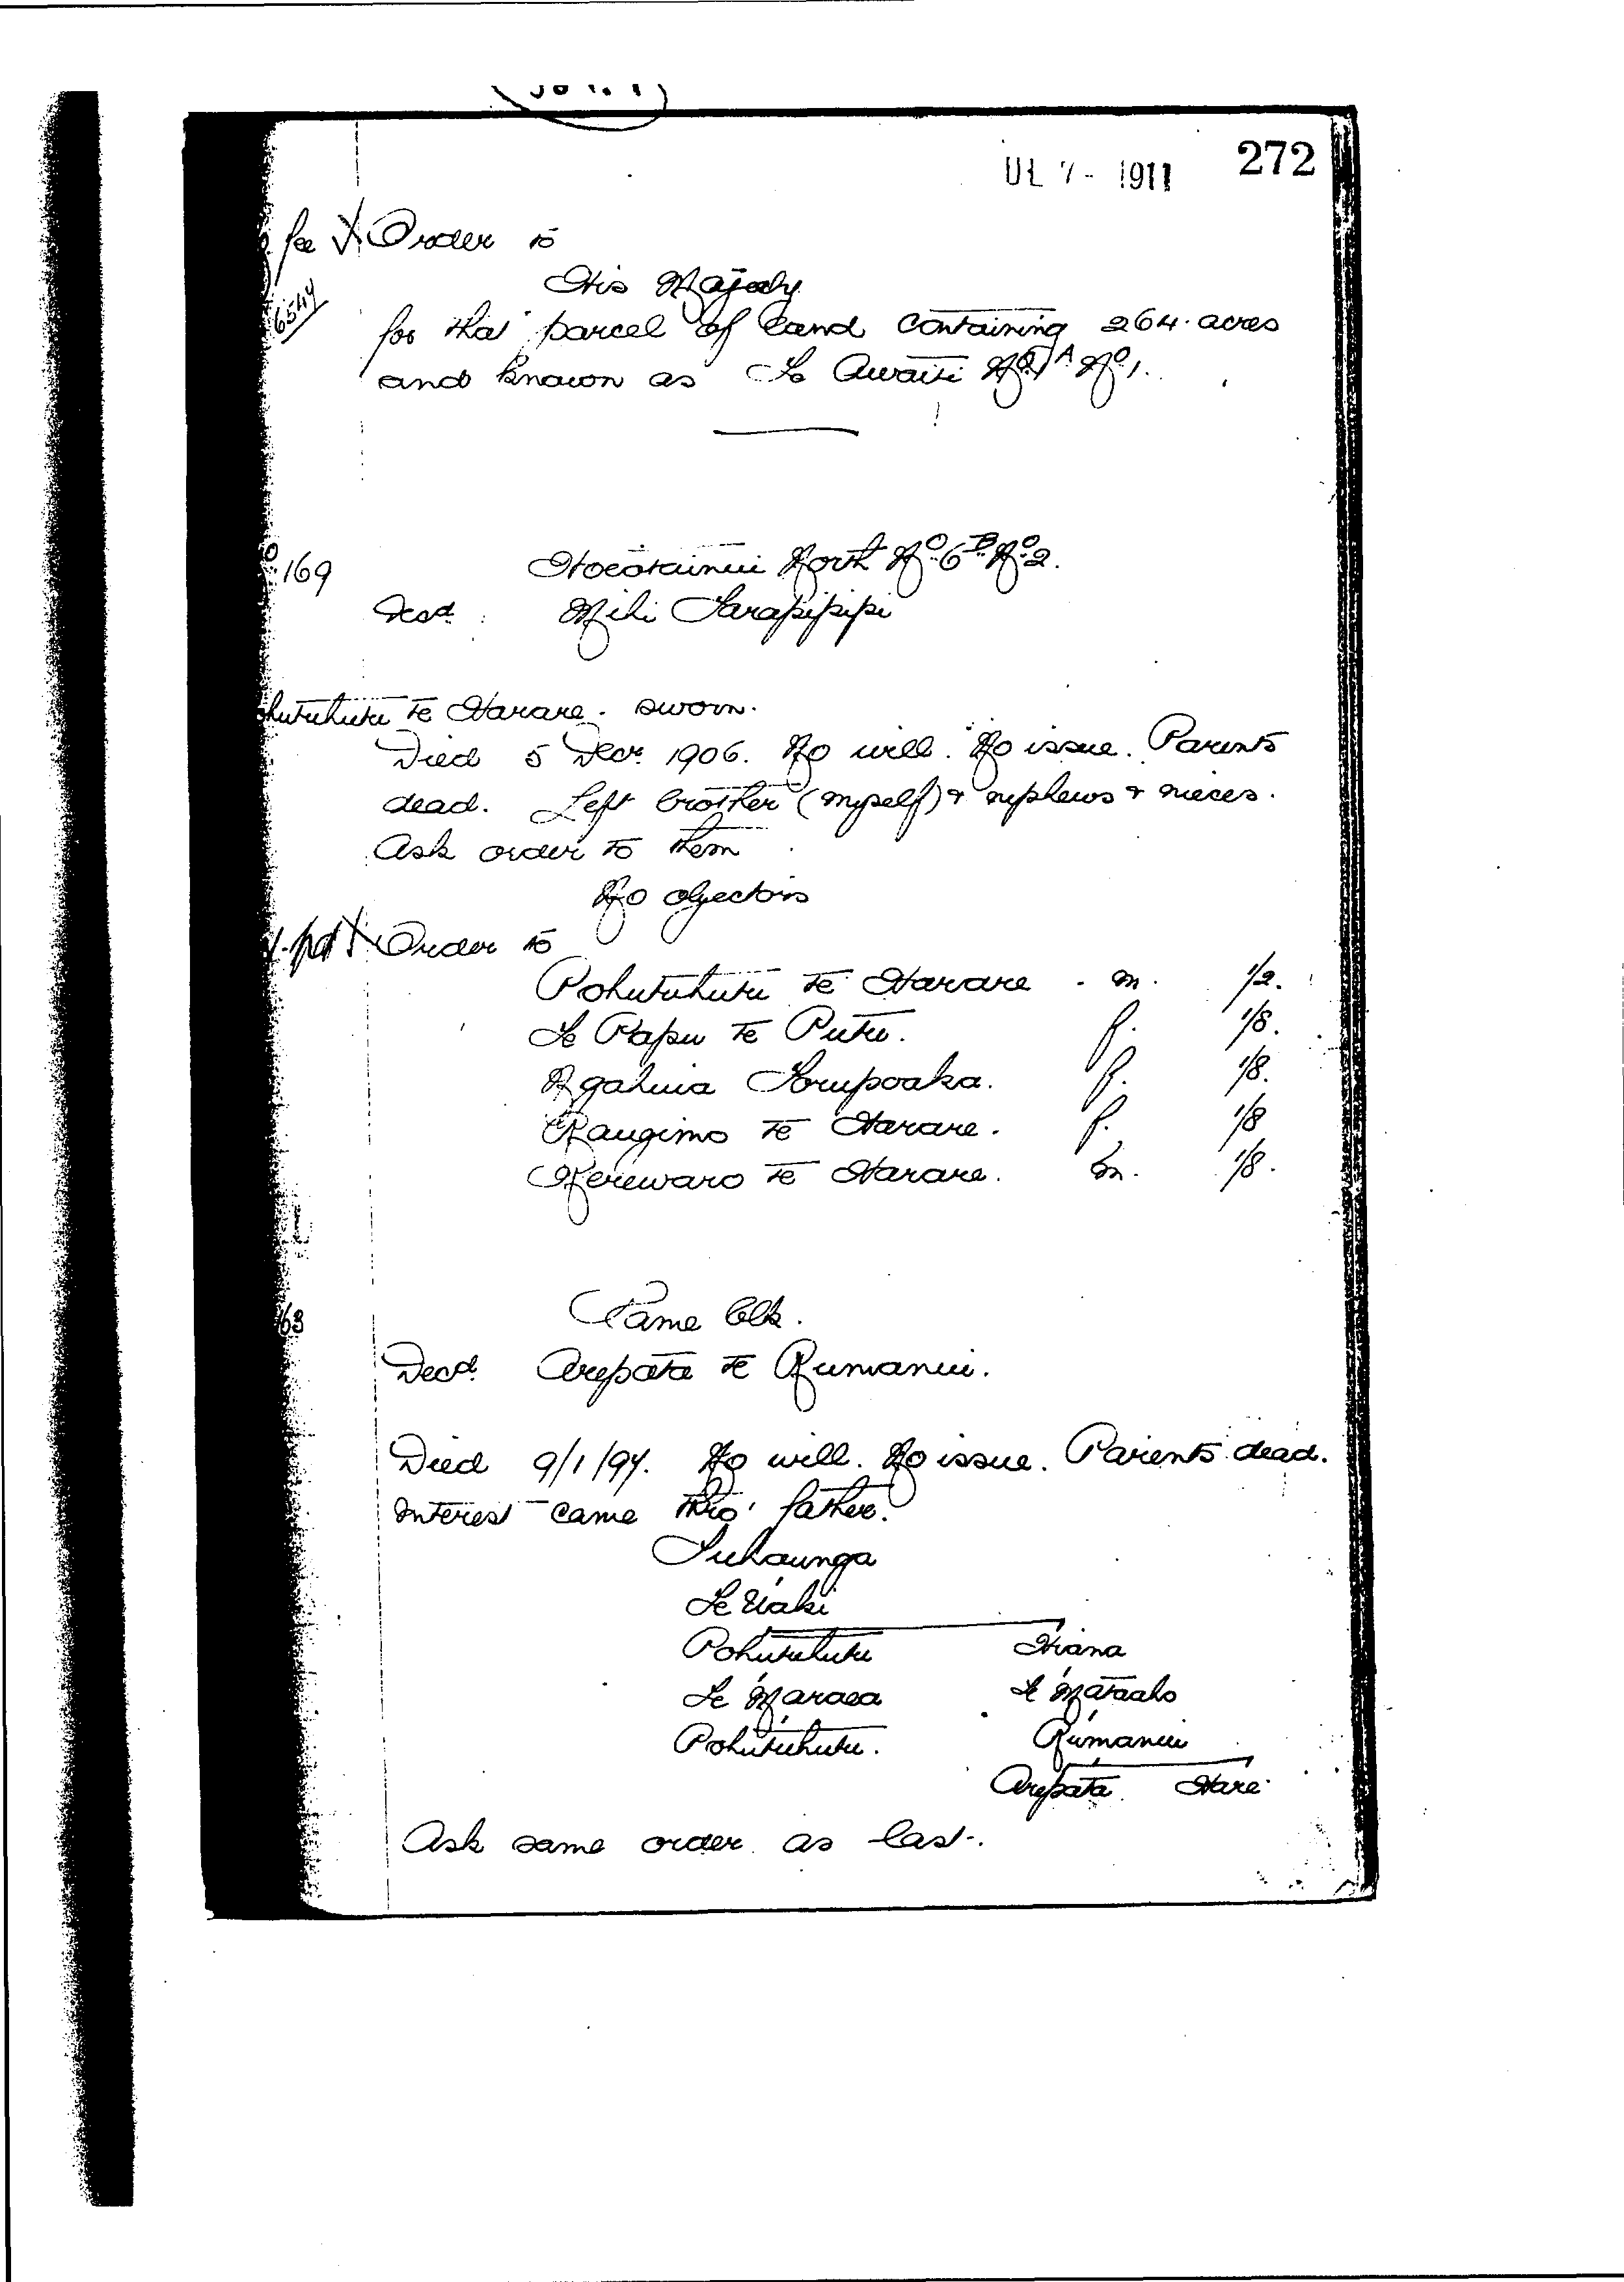 272
UL 7 - 1911
fee X Order to
6544
His Majesty
for that parcel of land containing 264 acres
and known as Te Awaiti No 1A No 1.
169
Hoeotainui North No 6B No 2.
Decd. Mihi Tarapipipi
ohutuhutu Te Harare. sworn.
Died 5 Decr 1906. No will. No issue. Parents
dead. Left brother (myself) & nephews & nieces.
Ask order to them
No objectors
pd X Order to
Pohutuhutu Te Harare - m. 1/2.
Te Rapu Te Putu. f. 1/8.
Ngahuia Torupoaka. f. 1/8.
Rangimo Te Harare. f. 1/8
Kerewaro Te Harare. m. 1/8.
63
Same blk.
Decd. Arepata Te Rumanui.
Died 9/1/97. No will. No issue. Parents dead.
Interest came thro' father.
Tuhaunga
Te Uaki
Pohutuhutu Hiana
Te Maraea Te Mataaho
Pohutuhutu. Rumanui
Arepata Hare
Ask same order as last.